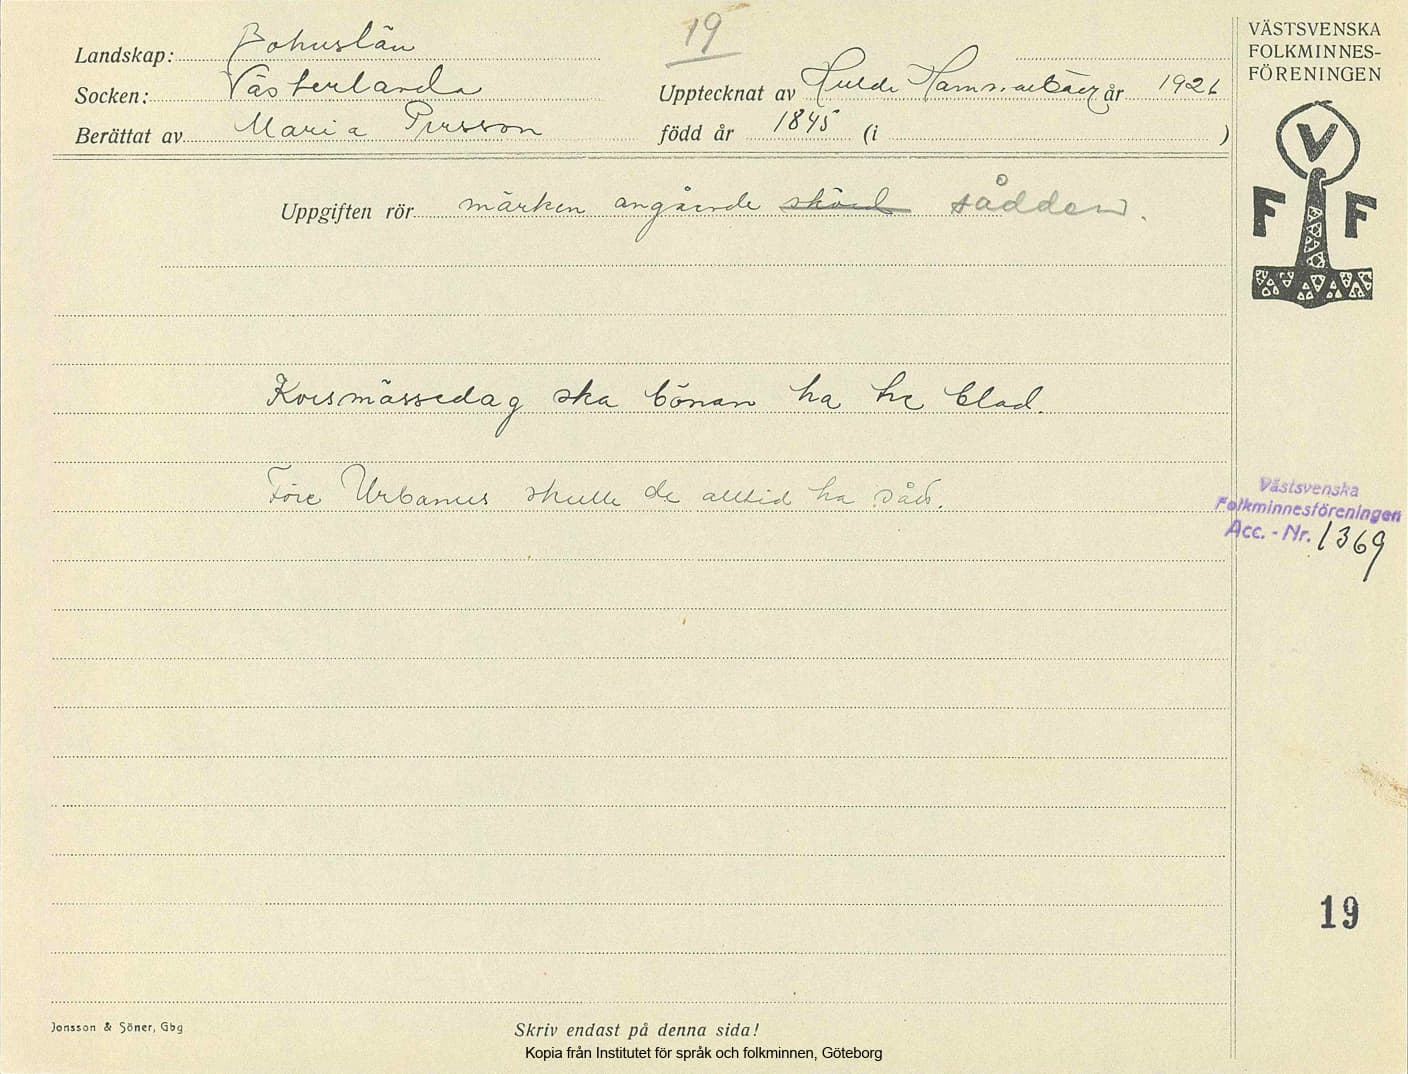 19
Landskap: Bohuslän
Socken: Västerlanda
Berättat av Maria Persson
Upptecknat av Hulda Hammarbäck år 1926
född år 1845 (i )
Uppgiften rör märken angående skörd sådden.
Korsmässedag ska bönan ha tre blad.
Före Urbanus skulle de alltid ha sått.
VÄSTSVENSKA
FOLKMINNES-
FÖRENINGEN
V
F F
Västsvenska
Folkminnesföreningen
Acc. - Nr. 1369
19
Jonsson & Söner, Gbg
Skriv endast på denna sida!
Kopia från Institutet för språk och folkminnen, Göteborg